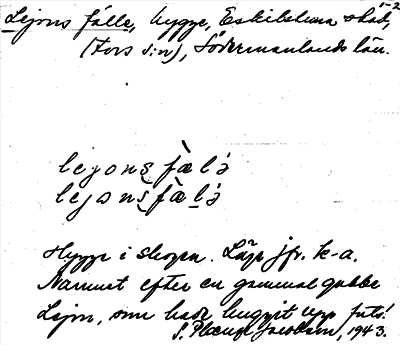 Lejons fälle, hygge, Eskilstuna stad,
(Fors s:n), Södermanlands län.
lejons fælə
lejons fælə
Hygge i skogen. Läge jfr. k-a.
Namnet efter en gammal gubbe
Lejon, som hade huggit upp
S. Jacobson, 1943.